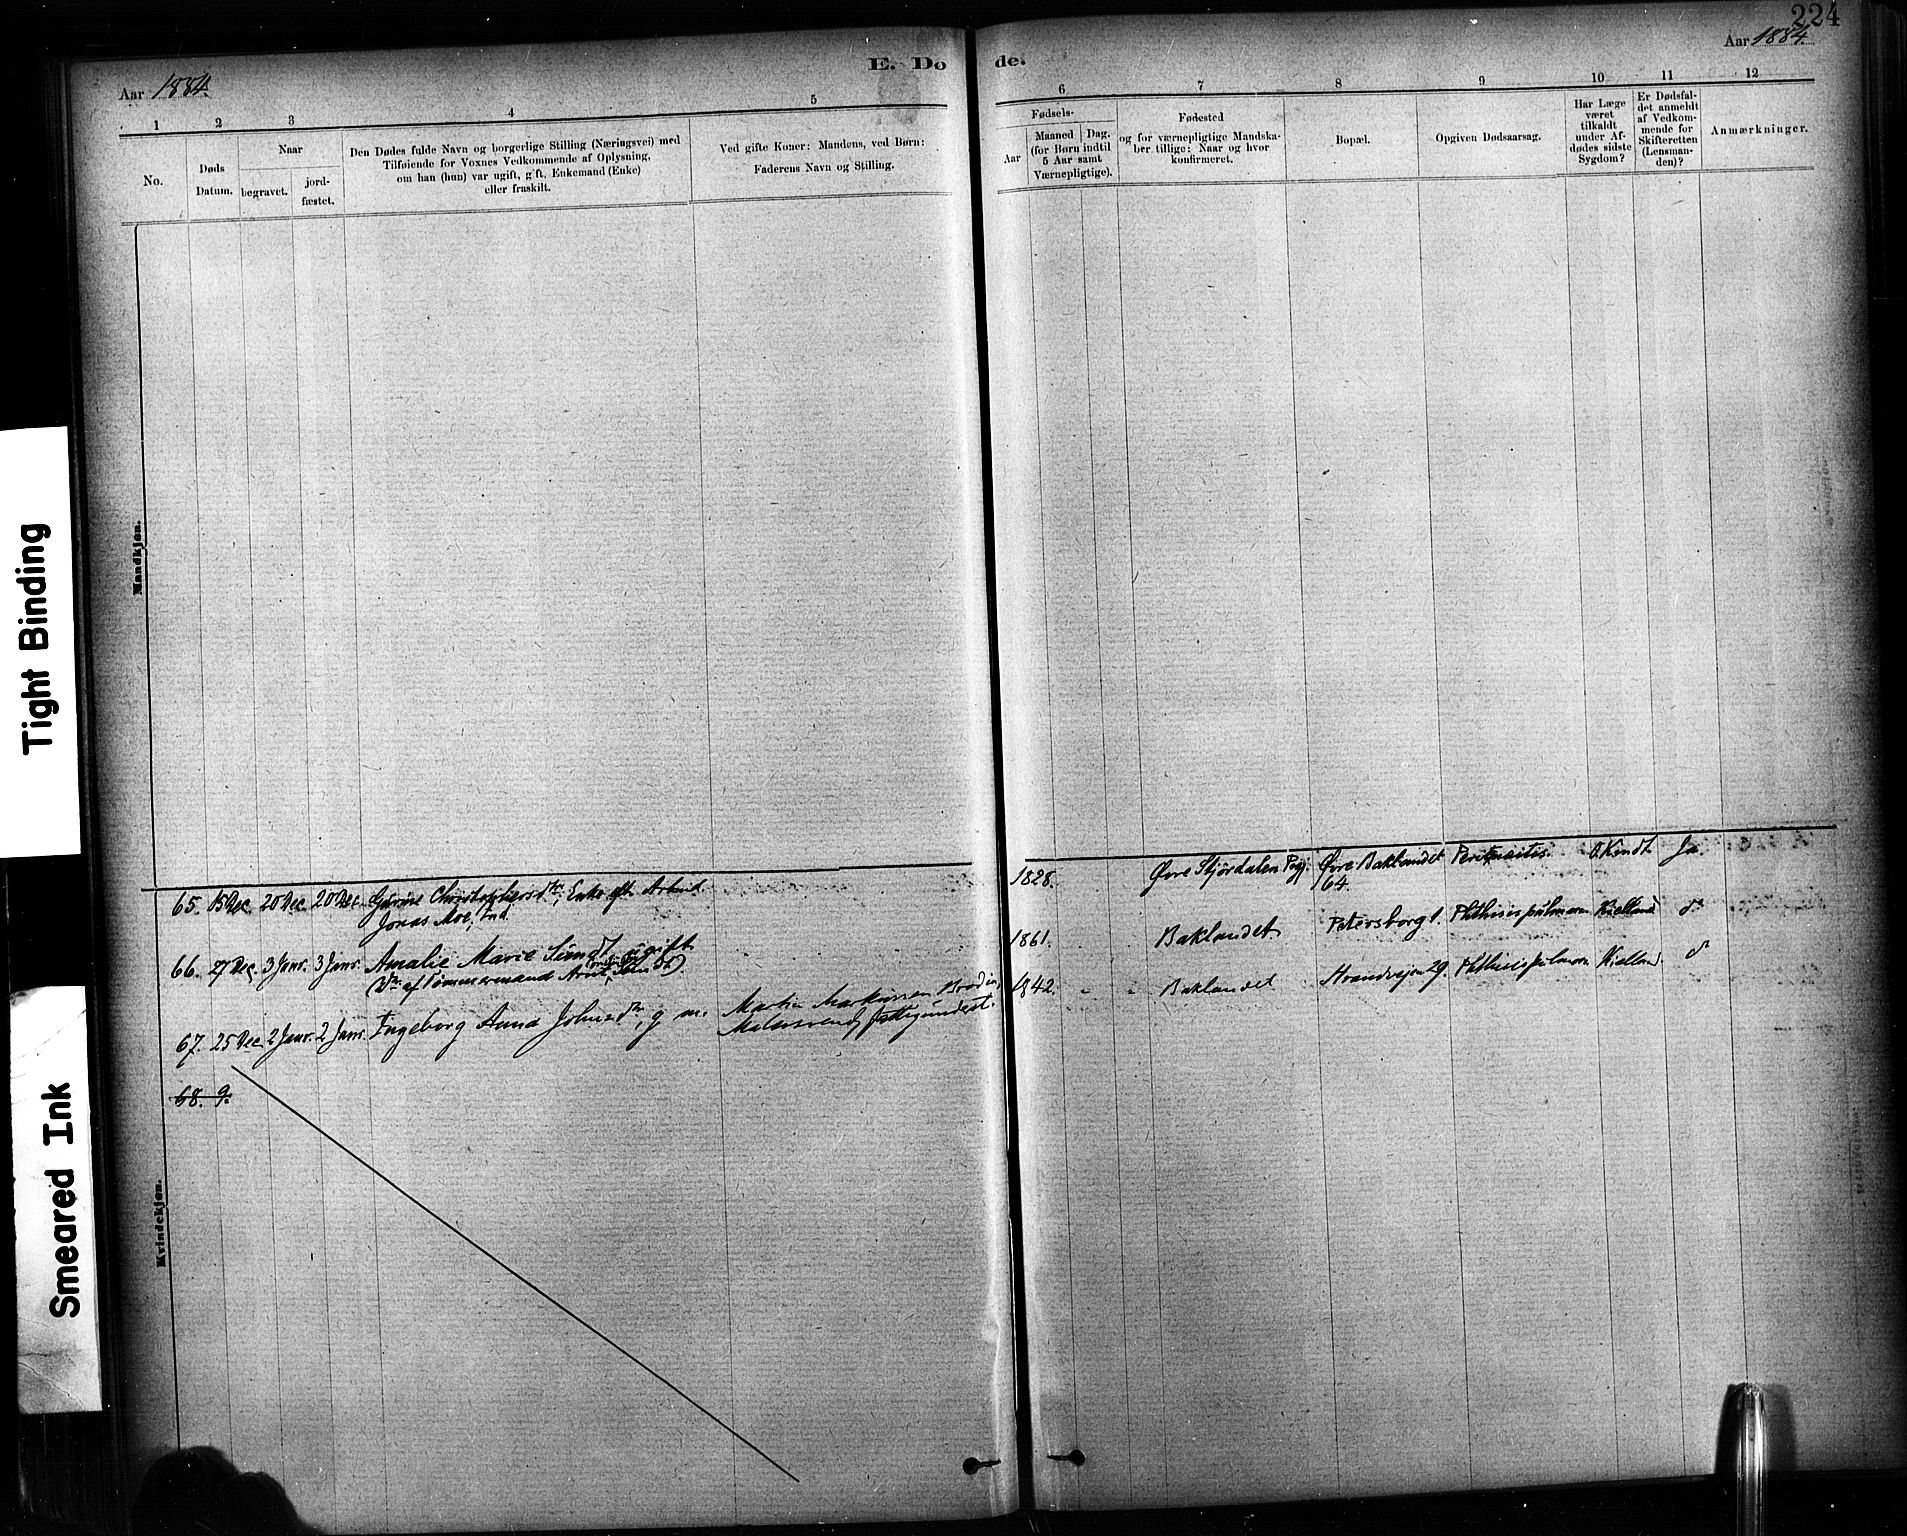 224
Aar 1884.
E. Do
de.
Aar 1884.
1 2 3 4 5
No.
Døds Datum.
Naar
begravet.
jord-
fæstet.
Den Dødes fulde Navn og borgerlige Stilling (Næringsvei) med
Tilføiende for Voxnes Vedkommende af Oplysning,
om han (hun) var ugift, gift, Enkemand (Enke)
eller fraskilt.
Ved gifte Koner: Mandens, ved Børn:
Faderens Navn og Stilling.
6 7 8 9 10 11 12
Fødsels-
Aar
Maaned
(for Børn indtil
5 Aar samt
Værnepligtige).
Dag.
Fødested
og for værnepligtige Mandska-
ber tillige: Naar og hvor
konfirmeret.
Bopæl.
Opgiven Dødsaarsag.
Har Læge
været
tilkaldt
under Af-
dødes sidste
Sygdom?
Er Dødsfal-
det anmeldt
af Vedkom-
mende for
Skifteretten
(Lensman-
den)?
Anmærkninger.
Mandkjøn.
Kvindekjøn.
65. 15 Dec 20 Dec 20 Dec. Gurine Christophersdtr, Enke eft. Arbmd.
Jonas Moe, Ind.
1828. Øvre Stjørdalen Pgj. Øvre Baklandet Peritonitis. Kindt Ja
64.
66. 27 Dec. 3 Janr. 3 Janr. Amalie Marie Sundt, ugift
Dtr. af Tømmermand Arnt Sundt)
1861. Baklandet Petersborg 1. Phthisis pulmon Kielland do
67. 25 Dec. 2 Janr. 2 Janr. Ingeborg Anna Johnsdtr, g. m. Martin Markussen
Malersvend
1842. - - Baklandet Strandvejen 29. Phthisis pulmon Kielland. do
68. 9.
Tight Binding
Smeared Ink